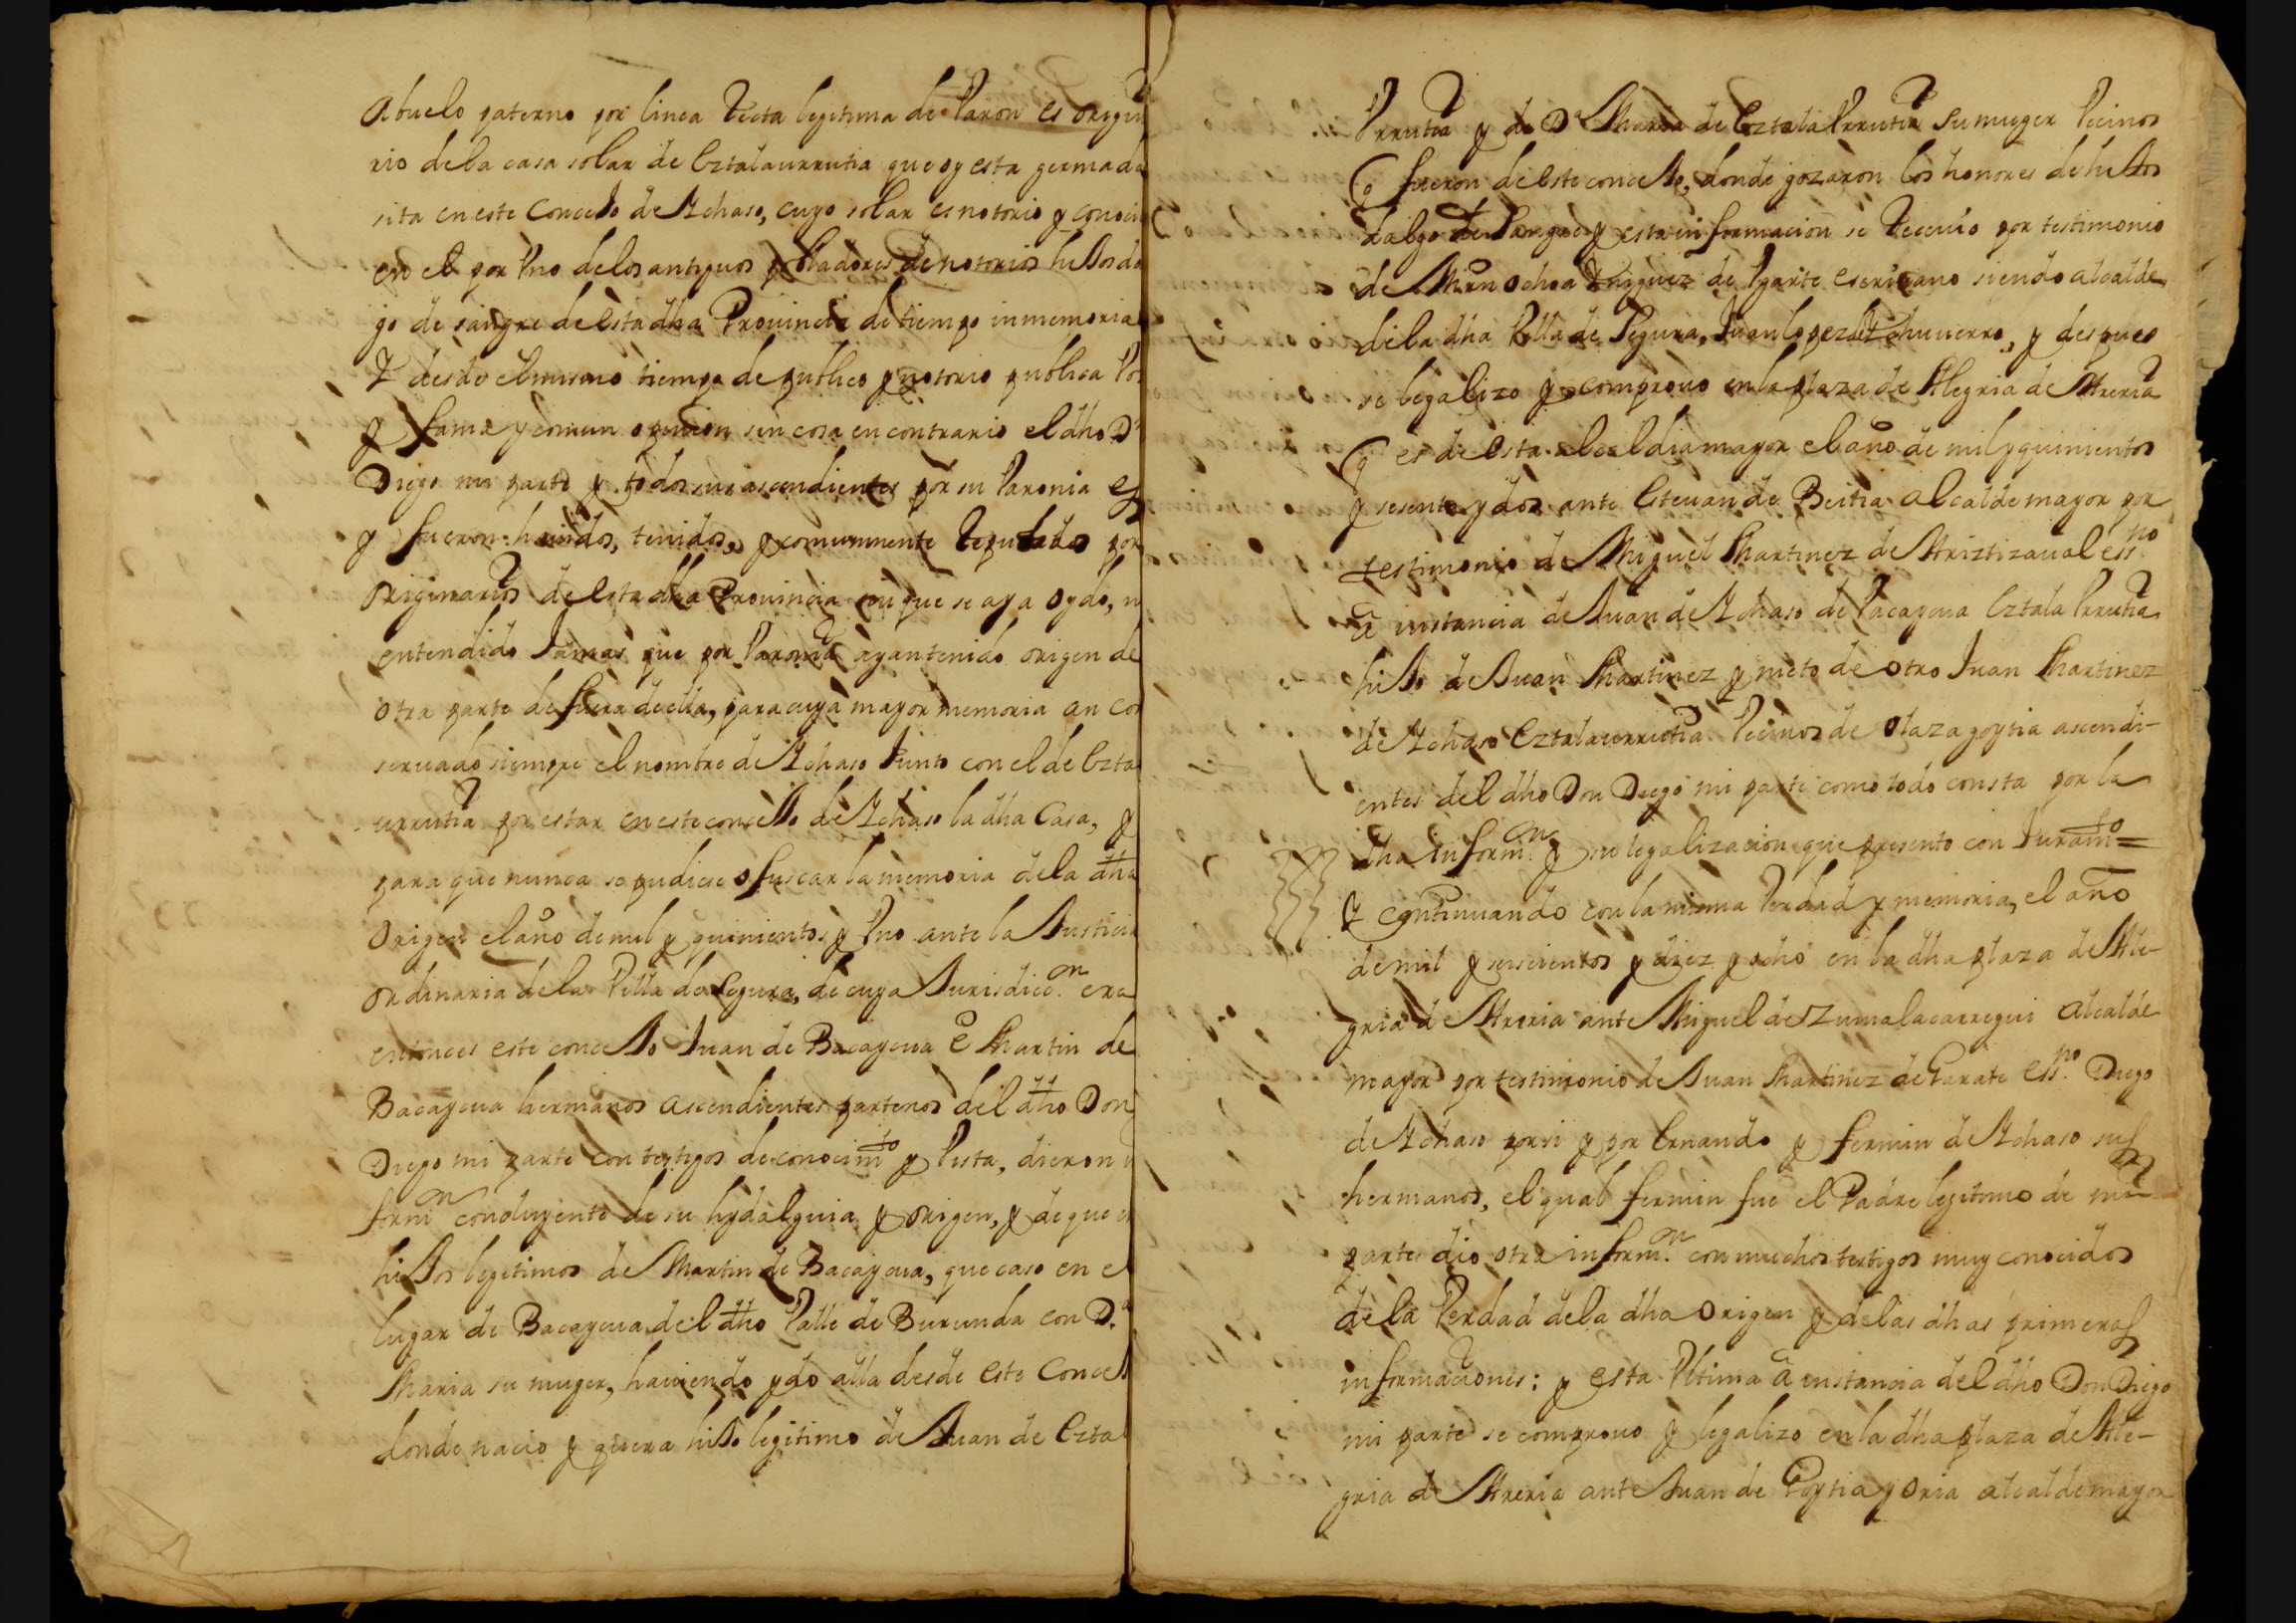 Abuelo paterno por linea recta legitima de Varon es origin
rio dela casa solar de Eztalaurrutia que oy esta yermada
sita en este Concejo de Ychaso, cuyo solar es notorio y conoci
en el por Vno delos antiguos pobladores de notorios hijosda
go de sangre de esta dha Prouincia de tiempo inmemoria
Y desde el mismo tiempo de publico y notorio publica Vo
y fama y comun opinion sin cosa en contrario el dho Dn
Diego mi parte y todos sus ascendientes por su Varonia es
y fueron hauidos, tenidos, y comunmente reputados por
originarios de esta dha Prouincia sin que se aya oydo, n
entendido Jamas que por Varonia ayan tenido origen de
otra parte de fuera de ella, para cuya mayor memoria an con
seruado siempre el nombre de Ychaso Junto con el de Ezta
urrutia por estar en este concejo de Ychaso la dha Casa, y
para que nunca se pudiese ofuscar la memoria dela dha
Origen el año de mil y quinientos y Vno ante la Justicia
ordinaria dela Villa de Segura, de cuya Jurisdicon. era
entonces este concejo Juan de Bacaycua e Martin de
Bacaycua hermanos ascendientes parternos del dho Don
Diego mi parte con testigos de conocimto y Vista, dieron
formon concluyente de su hydalguia y origen, y de que
hijos legitimos de Martin de Bacaycua, que caso en e
lugar de Bacaycua del dho Valle de Burunda con D.a
Maria su muger, hauiendo ydo alla desde este Concej
donde nacio y quera hijo legitimo de Juan de Eztal
Vrrutia y de Da Maria de Eztala Vrrutia su muger Vecinos
q fueron de este concejo, donde gozaron los honores de hijos
dalgo de sangre y esta informacion se reciuio por testimonio
de Mrn Ochoa Yñiguez de Vgarte escriuano siendo alcalde
dela dha Villa de Segura, Juan lopez de Echuuerro, y despues
se legalizo y comprouo en la plaza de Alegria de Areria
q es de esta Alcaldia mayor el año de mil y quinientos
y sesenta y dos ante Esteuan de Beitia alcalde mayor por
testimonio de Miguel Martinez de Ariztizaual essno
a instancia de Juan de Ychaso de Vacaycua Eztala Vrrutia
hijo de Juan Martinez y nieto de otro Juan Martinez
de Ychaso Eztalaurrutia Vecinos de Olazagoytia ascendi-
entes del dho Don Diego mi parte como todo consta por la
dha informon. y su legalizacion que presento con Juramto=
Y continuando con la misma Verdad y memoria, el año
de mil y seiscientos y diez y ocho en la dha plaza de Ale-
gria de Areria ante Miguel de Zumalacarregui alcalde
mayor por testimonio de Juan Martinez de Garate essno Diego
de Ychaso por si y por Ernando y fermin de Ychaso sus
hermanos, el qual fermin fue el Padre legitimo de mi
parte dio otra informon. con muchos testigos muy conocidos
de la Verdad dela dha Origen y delas dhas primeras
informaciones: y esta Vltima a instancia del dho Don Diego
mi parte se comprouo y legalizo en la dha plaza de Ale-
gria de Areria ante Juan de Goytia y Oria alcalde mayor